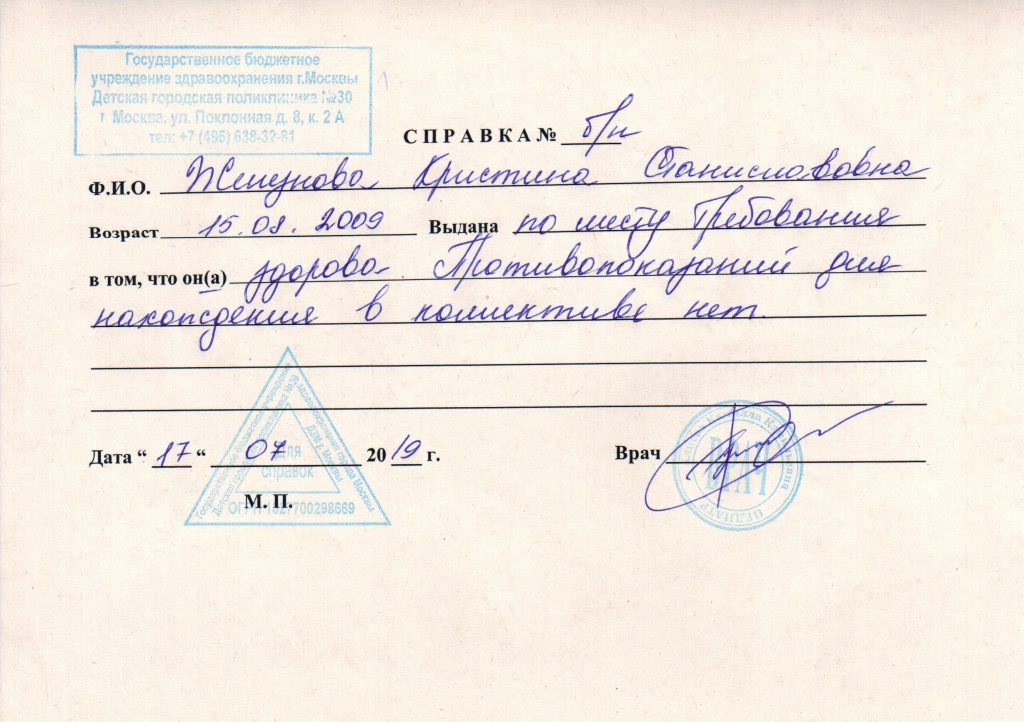 Государственное бюджетное
учреждение здравоохранения г.Москвы
Детская городская поликлиника №30
г Москва, ул. Поклонная д. 8, к. 2 А
тел: +7 (495) 638-32-81
СПРАВКА № б/н
Ф.И.О. Кристина Станиславовна
Возраст 15.08.2009 Выдана по месту Требования
в том, что он(а) здорова. Противопоказаний для
нахождения в коллективе нет.
Дата “ 17 “ 07 20 19 г. Врач
Государственное бюджетное учреждение здравоохранения города Москвы
Для
справок
М. П.
ОГРН 1027700298669
ВРАЧ
ПЕДИАТР